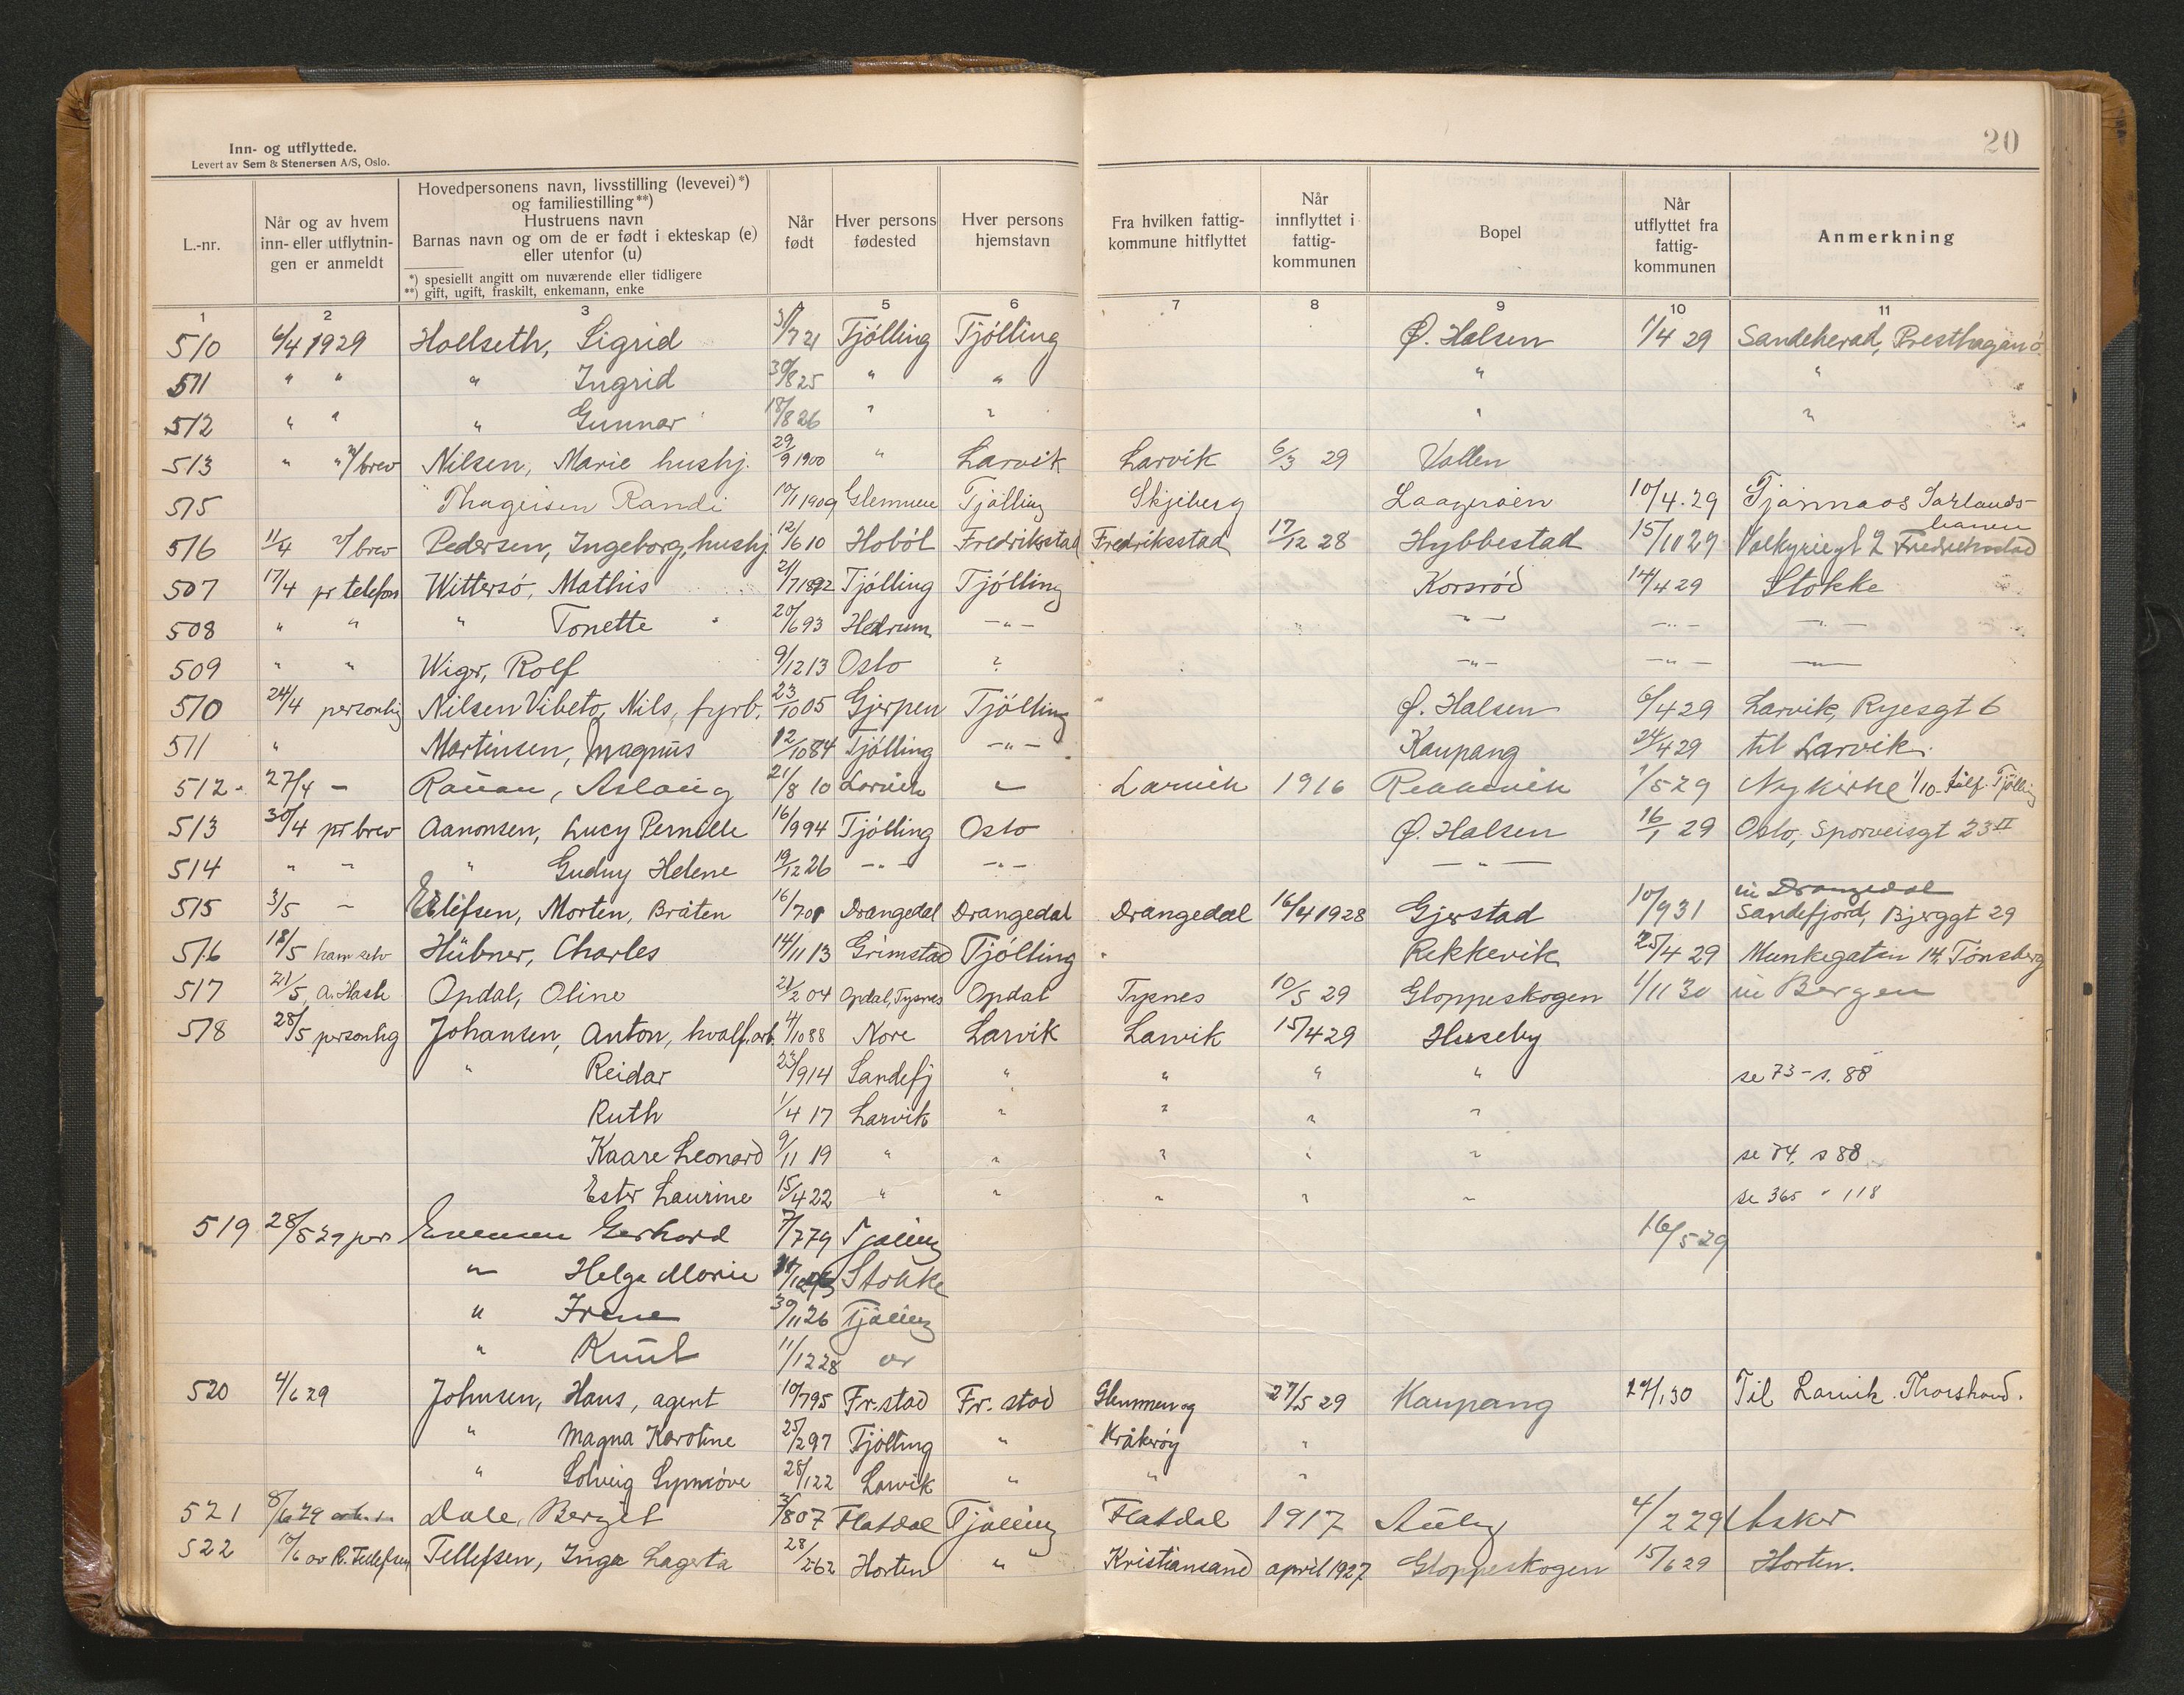 Inn- og utflyttede.
Levert av Sem & Stenersen A/S, Oslo.
20
L.-nr. | Når og av hvem inn- eller utflytnin-gen er anmeldt | Hovedpersonens navn, livsstilling (levevei)*) og familiestilling**) Hustruens navn Barnas navn og om de er født i ekteskap (e) eller utenfor (u) | Når født | Hver persons fødested | Hver persons hjemstavn | Fra hvilken fattig-kommune hitflyttet | Når innflyttet i fattig-kommunen | Bopel | Når utflyttet fra fattig-kommunen | Anmerkning
*) spesiellt angitt om nuværende eller tidligere
**) gift, ugift, fraskilt, enkemann, enke
1 2 3 4 5 6 7 8 9 10 11
510 6/4 1929 Hollseth, Sigrid 31/7 21 Tjølling Tjølling Ø. Halsen 1/4 29 Sandeherad, Presthagen
511 " " " Ingrid 30/8 25 " " " " "
512 " " " Gunnar 18/8 26 " " " "
513 " " brev Nilsen, Marie hushj. 29/9 1900 " Larvik Larvik 6/3 29 Vallen
515 Randi 10/1 1909 Glemmen Tjølling Skjeberg 10/4. 29
516 11/4 brev Pedersen, Ingeborg, hushj 12/6 10 Hobøl Fredriksstad Fredriksstad 17/12 28 Hybbestad 15/10 29 Valkyriegt 2 Fredrikstad
507 17/4 pr telefon Wittersø, Mathis 21/7 1892 Tjølling Tjølling Korsrød 14/4 29 Stokke
508 " " " Tonette 20/6 93 Hedrum -"- -"- -"- -"-
509 " " Wiger, Rolf 9/12 13 Oslo ? -"- -"- -"-
510 24/4 personlig Nilsen Vibeto, Nils, fyrb. 23/10 05 Gjerpen Tjølling Ø. Halsen 6/4 29 Larvik, Ryesgt 6
511 " Martinsen, Magnus 12/10 84 Tjølling -"- Kaupang 24/4 29 til Larvik.
512 27/4 - Rauan, Aslaug 21/8 10 Larvik " Larvik 1916 1/5 29 Nykirke 1/10 Tjølling
513 30/4 pr brev Aanonsen, Lucy Pernille 16/9 94 Tjølling Oslo Ø. Halsen 16/1 29 Oslo, Sporveisgt 23 II
514 " " " Gudny Helene 19/12 26 -"- -"- -"-
515 3/5 - Eilefsen, Morten, Bråten 16/7 Drangedal Drangedal Drangedal 16/4 1928 Gjerstad 10/9 31 Drangedal
Sandefjord, Bjerggt 29
516 18/5 ham selv Hübner, Charles 14/11 13 Grimstad Tjølling Rekkevik 25/4 29 Munkegaten 14, Tønsberg
517 21/5, Opdal, Oline 21/2 04 Opdal, Tysnes Opdal Tysnes 10/5 29 Gloppeskogen 1/11 30 Bergen
518 28/5 personlig Johansen, Anton, hvalf.arb. 4/10 88 Nore Larvik Larvik 15/4 29 Huseby
" Reidar 23/9 14 Sandefj " " " " se 73 - s. 88
Ruth 1/4 17 Larvik " " " "
Kaare Leonard 9/11 19 " " " " " se 74, s 88
Ester Laurine 15/4 22 " " " " " se 365 " 118
519 28/5 29 pers Evensen Gerhard 7/7 79 Tjølling 16/5 29
" Helga Marie Stokke
" Irene 30/11 26 Tjølling
" Knut 11/12 28
520 4/6 29 Johnsen, Hans, agent 10/7 95 Fr.stad Fr. stad Glemmen og 27/5 29 Kaupang 27/1 30 Til Larvik.
" Magna Karoline 25/2 97 Tjølling " Kråkerøy "
" Solveig Synnøve 28/1 22 Larvik " " "
521 8/6 29 Dale, Bergit 3/8 07 Flatdal Tjølling Flatdal 1917 Auby 4/2 29 Asker
522 10/6 av R. Tellefsen Tellefsen, Inga Lagerta 28/2 62 Horten " " Kristiansand april 1927 Gloppeskogen 15/6 29 Horten.